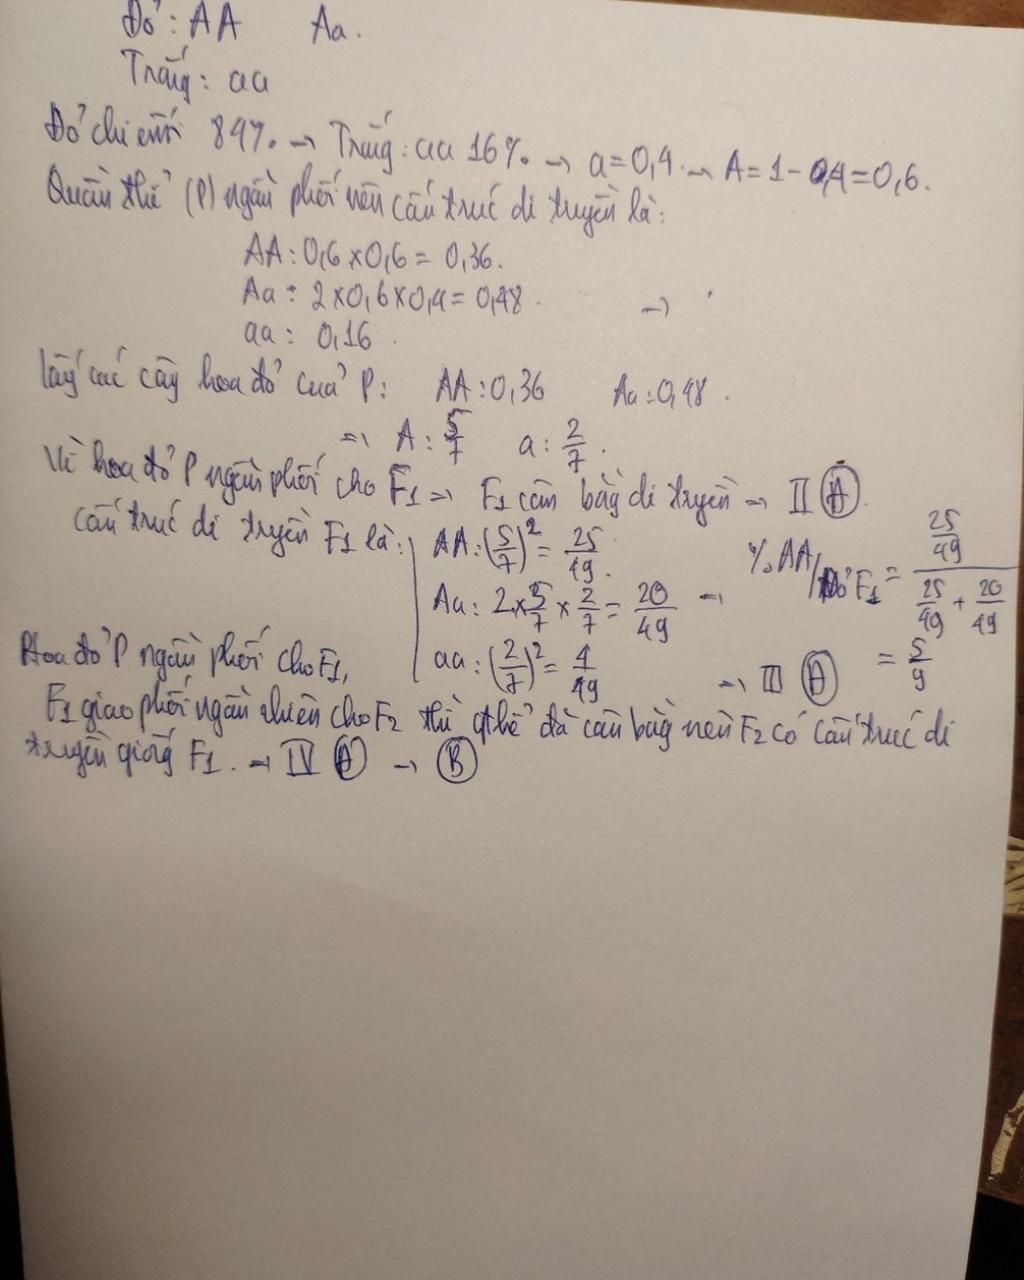 Đỏ: AA Aa.
Trắng: aa
Đỏ chiếm 84% → Trắng: aa 16% → a = 0,4 → A = 1 - 0,4 = 0,6.
Quần thể (P) ngẫu phối nên cấu trúc di truyền là:
AA: 0,6 x 0,6 = 0,36.
Aa: 2 x 0,6 x 0,4 = 0,48. →
aa: 0,16.
lấy các cây hoa đỏ của P: AA: 0,36 Aa: 0,48.
⇒ A: 5/7 a: 2/7.
Vì hoa đỏ P ngẫu phối cho F1 → F1 cân bằng di truyền → II Đ.
cấu trúc di truyền F1 là: AA: (5/7)² = 25/49.
Aa: 2 x 5/7 x 2/7 = 20/49 → % AA/Đỏ F1 = 25/49 / (25/49 + 20/49)
= 5/9
aa: (2/7)² = 4/49 → III Đ
Hoa đỏ P ngẫu phối cho F1,
F1 giao phối ngẫu nhiên cho F2 thì qthể đã cân bằng nên F2 có cấu trúc di
truyền giống F1. → IV Đ → B